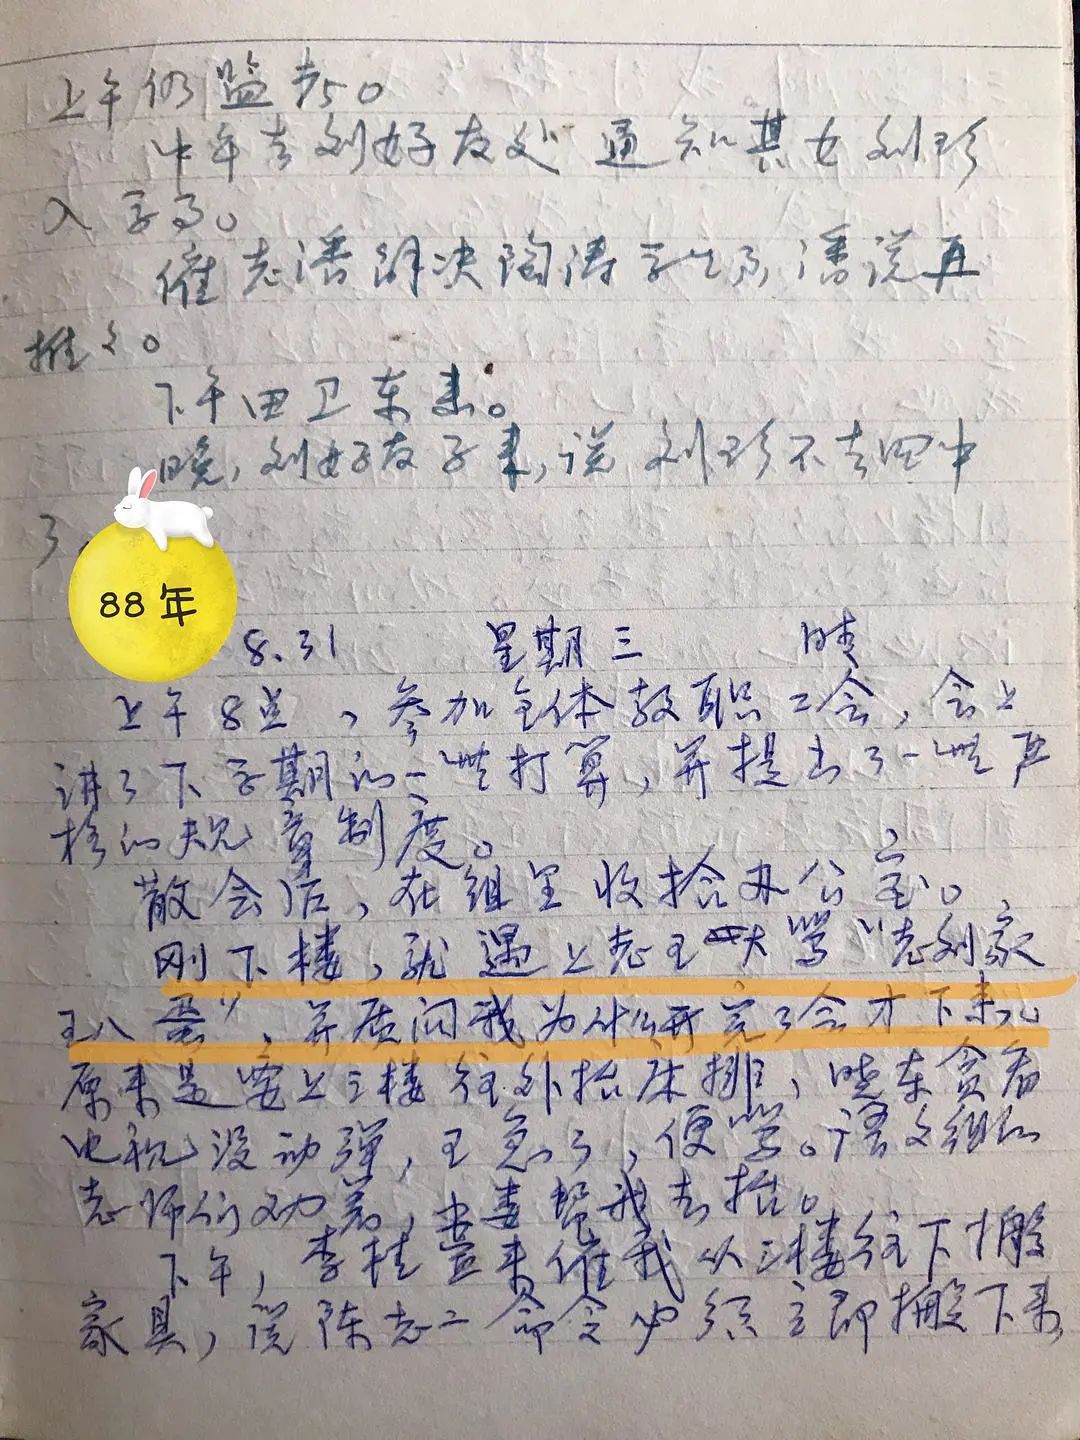 上午仍监考。
中午去刘好友处通知其女刘珍
入学事。
催老潘解决陶涛学生事,潘说再
推之。
下午田卫东来。
晚,刘好友子来,说刘珍不去四中
了
88年
8.31 星期三 晴
上午8点,参加全体教职工会,会上
讲了下学期的一些打算,并提出了一些严
格的规章制度。
散会后,在组里收拾办公室。
刚下楼,就遇上老王大骂“老刘家
王八蛋”,并质问我为什么开完了会才下来。
原来是要上三楼往外抬床排,晓东贪看
电视没动弹,王急了,便骂。语文组的
老师们劝着,娄帮我去抬。
下午,李桂来催我从三楼往下搬
家具,说陈老二命令必须立即搬下来,